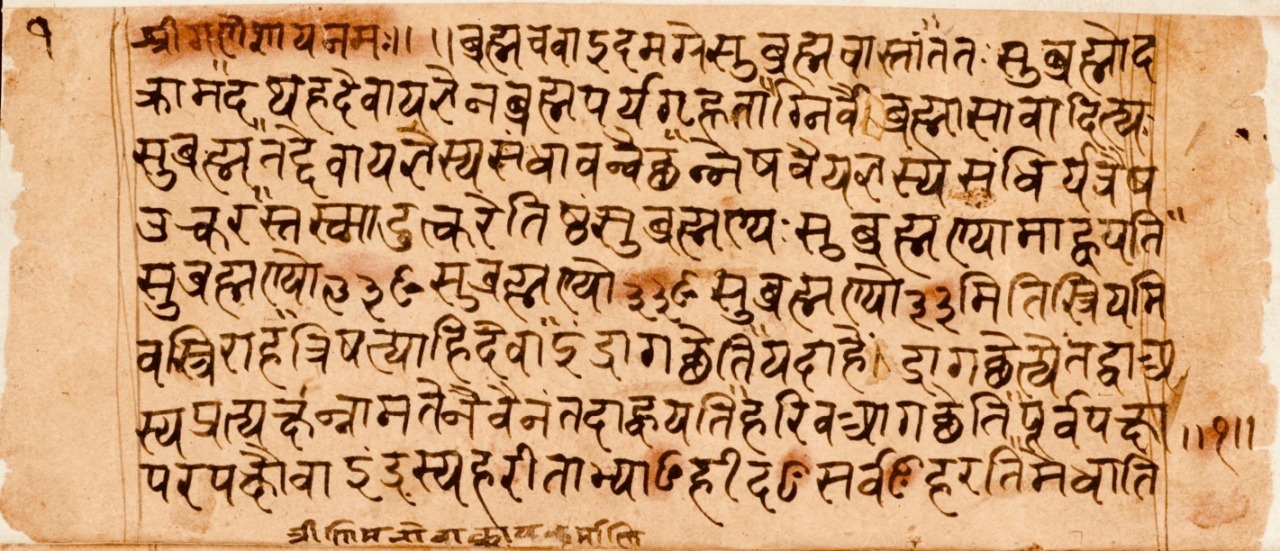 १ श्रीगणेशाय नमः॥ ॥ब्रह्म च वा ऽइदमग्रे सुब्रह्म चास्तां" ततः सुब्रह्मोद
क्रामद"थ ह देवा यज्ञेन ब्रह्म पर्यगृह्णता"ग्निर्वै ब्रह्मासावादित्यः
सुब्रह्म" तद्देवा यज्ञस्य संधावन्वैच्छ"न्नेष वै यज्ञस्य संधिर्यत्रैष
उत्कर"स्तस्मादुत्करे तिष्ठंसुब्रह्मण्यः सुब्रह्मण्यामाह्वयति"
सुब्रह्मण्यो३ꣳ सुब्रह्मण्यो३ꣳ सुब्रह्मण्यो३मिति स्त्रियमि
व त्रिराह" त्रिषत्या हि देवा" इंद्रागच्छेति" यदाहेंद्रागच्छेत्येतद्वा अ
स्य प्रत्यक्षं नाम तेनैवैनं तदाह्वयति" हरिव आगच्छेति" पूर्वपक्षा
परपक्षौ वा इंद्रस्य हरी ताभ्याꣳ हीदꣳ सर्वꣳ हरति" मेधाति
॥१॥